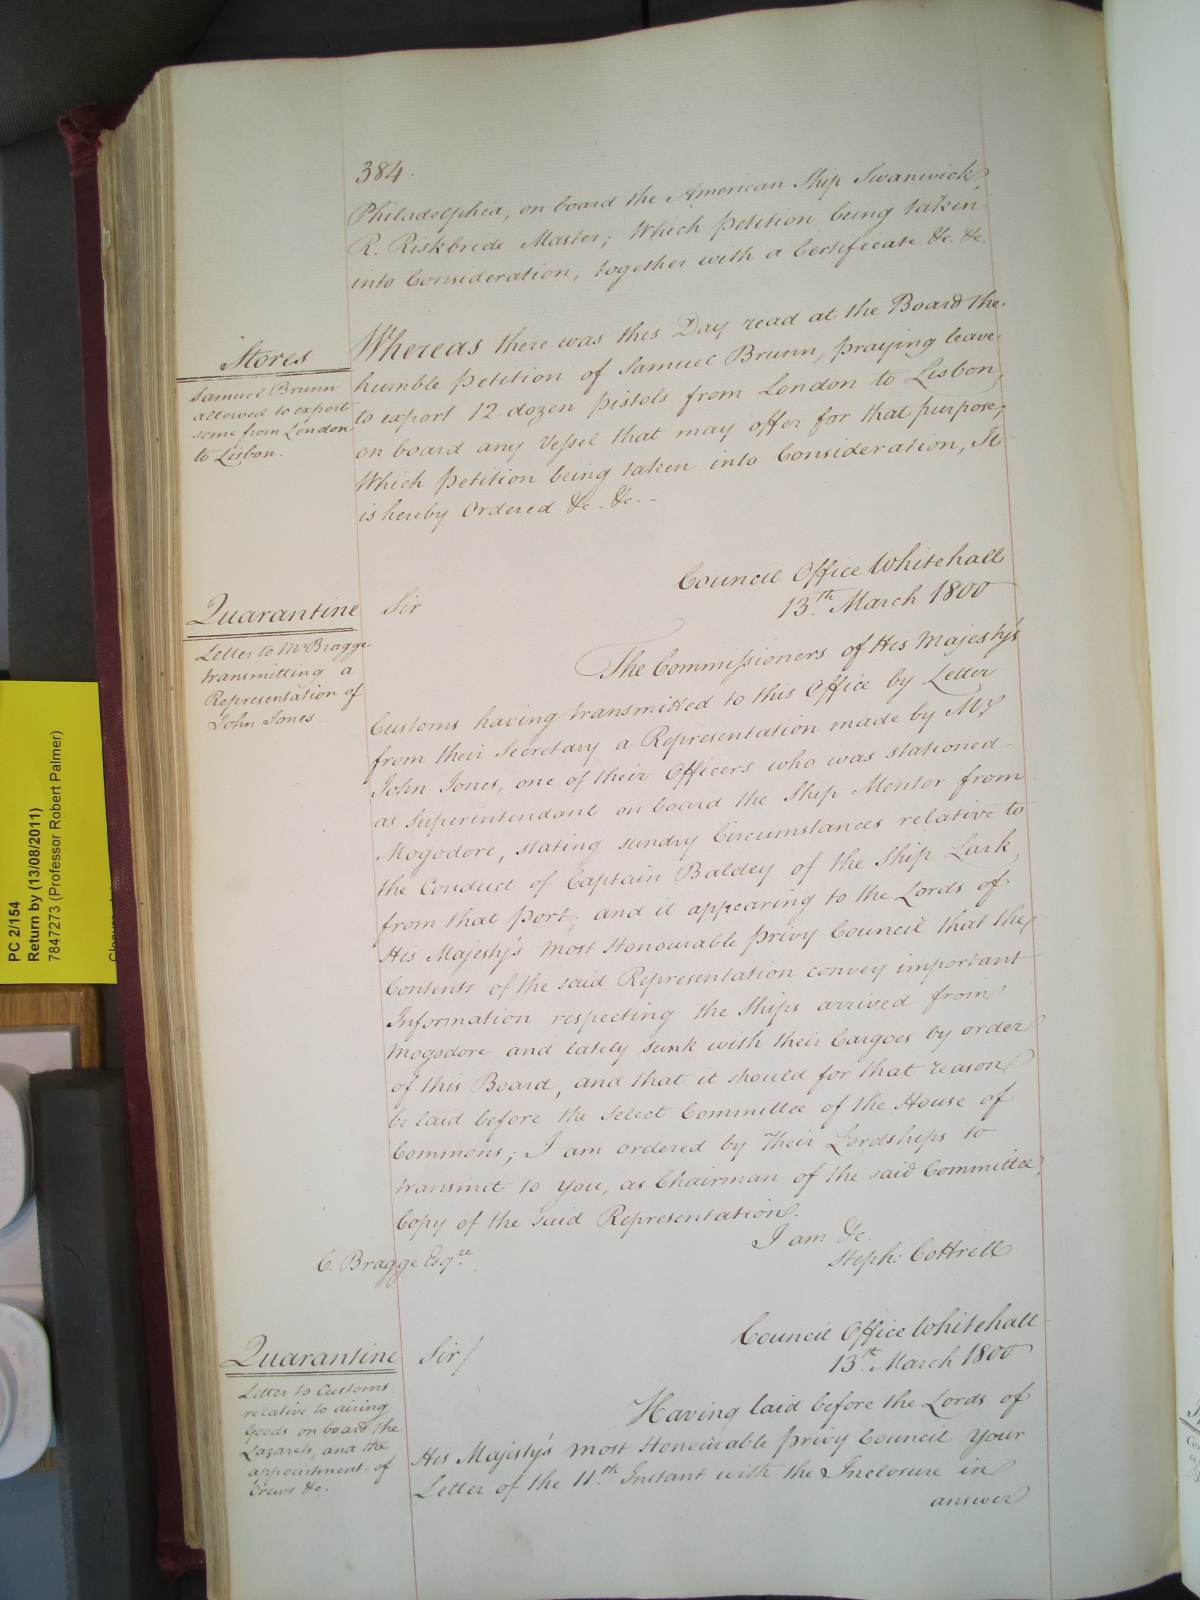 384.
Philadelphia, on board the American Ship Swanwick,
R. Riskbride Master; Which Petition being taken
into Consideration, together with a Certificate &c. &c.
Stores
Samuel Brunn
allowed to export
some from London
to Lisbon.
Whereas there was this Day read at the Board the
humble Petition of Samuel Brunn, praying leave
to export 12 dozen Pistols from London to Lisbon,
on board any Vessel that may offer for that purpose;
Which Petition being taken into Consideration, It
is hereby Ordered &c. &c. -
Council Office Whitehall
13th March 1800
Quarantine
Letter to Mr Bragge
transmitting a
Representation of
John Jones.
Sir
The Commissioners of His Majesty's
Customs having transmitted to this Office by Letter
from their Secretary a Representation made by Mr
John Jones, one of their Officers who was stationed
as Superintendant on board the Ship Mentor from
Mogodore, stating sundry Circumstances relative to
the Conduct of Captain Baldey of the Ship Lark,
from that Port; and it appearing to the Lords of
His Majesty's most Honourable Privy Council that the
Contents of the said Representation convey important
Information respecting the Ships arrived from
Mogodore and lately sunk with their Cargoes by order
of this Board, and that it should for that reason
be laid before the Select Committee of the House of
Commons; I am ordered by Their Lordships to
transmit to you, as Chairman of the said Committee,
Copy of the said Representation.
I am &c.
Steph: Cottrell
C. Bragge Esqre
Council Office Whitehall
13th March 1800
Quarantine
Letter to Customs
relative to airing
Goods on board the
Lazarets, and the
appointment of
Crews &c.
Sir/
Having laid before the Lords of
His Majesty's most Honourable Privy Council your
Letter of the 11th Instant with the Inclosure in
answer
PC 2/154
Return by (13/08/2011)
7847273 (Professor Robert Palmer)